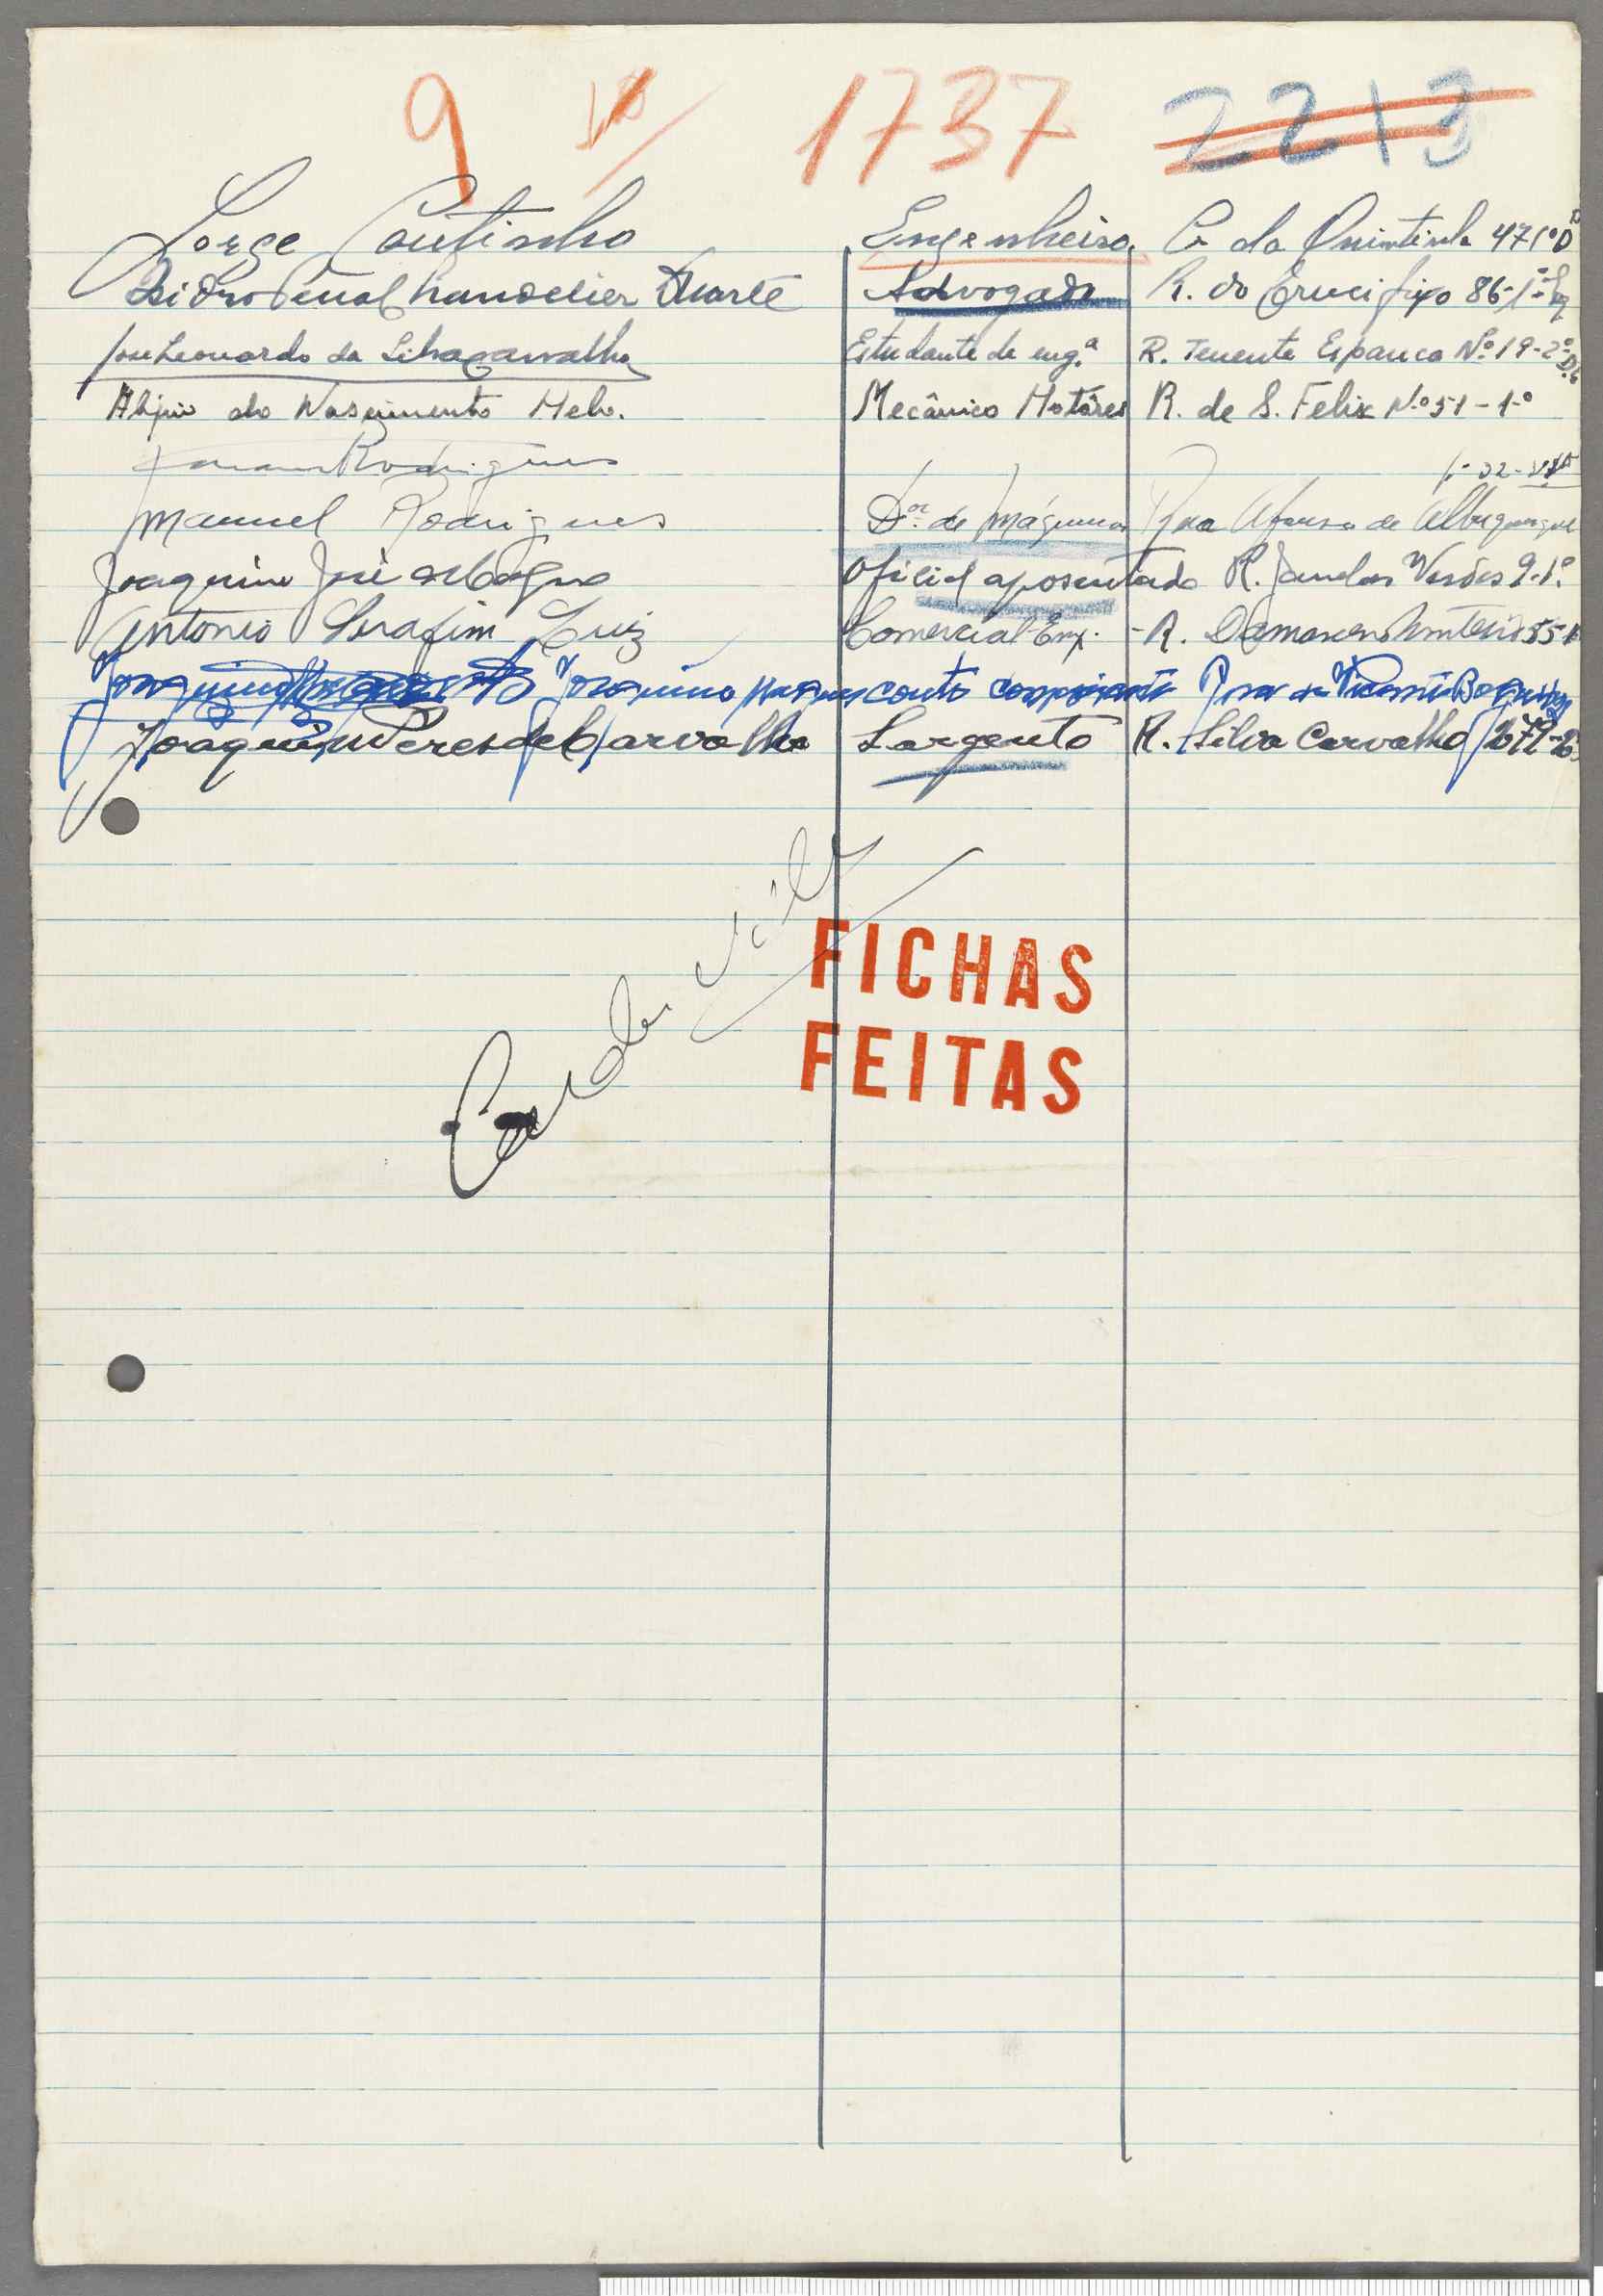 9 10 1737 2213
Jorge Coutinho Engenheiro C. da Quintinha 47 1º D
Isidro Chandelier Duarte Advogado R. do Crucifixo 86-1º
José Leonardo da Silva Carvalho Estudante de eng.ª R. Tenente Espanca Nº 19-2º
Alípio do Nascimento Melo. Mecânico Motôres R. de S. Felix Nº 51-1º
Rodrigues
Manuel Rodrigues Rua Afonso de Albuquerque
Joaquim José Oficial aposentado R. Janelas Verdes 9-1º
Antonio Serafim Luiz Comercial Emp. - R. Damasceno Monteiro
Joaquim Marques couto
Joaquim Peres de Carvalho Sargento R. Silva Carvalho
FICHAS
FEITAS